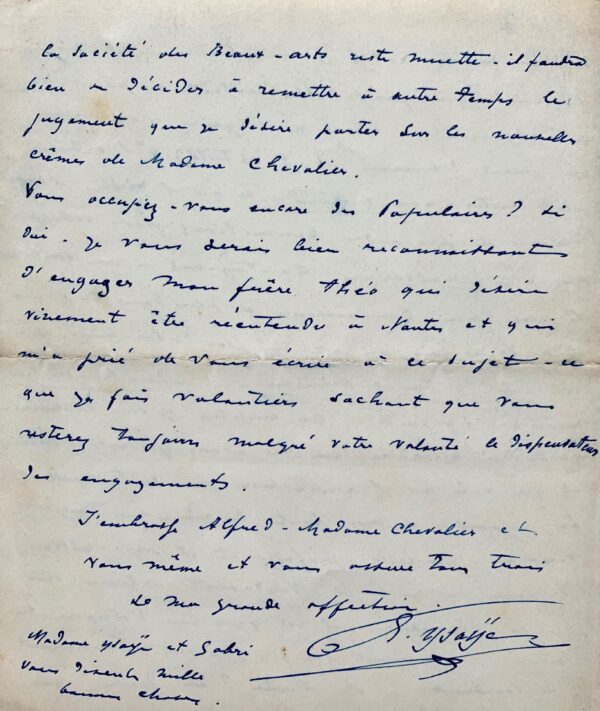 la Société des Beaux-arts reste muette - il faudra
bien se décider à remettre à autre temps le
jugement que je désire porter sur les nouvelles
crèmes de Madame Chevalier.
Vous occupez-vous encore des Populaires? Si
Oui - je vous serais bien reconnaissant
d'engager mon frère Théo qui désire
vivement être réentendu à Nantes et qui
m'a prié de vous écrire à ce sujet - ce
que je fais volontiers sachant que vous
resterez toujours malgré votre volonté le dispensateur
des engagements.
J'embrasse Alfred - Madame Chevalier et
vous même et vous assure tous trois
de ma grande affection.
E. Ysaÿe
Madame Ysaÿe et Gabri
vous disent mille
bonnes choses.